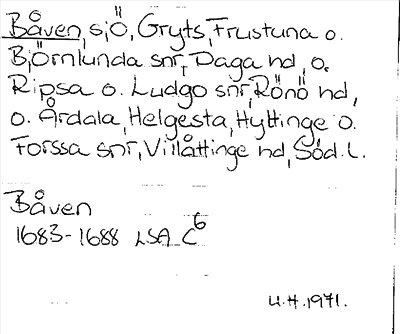 Båven, sjö, Gryts, Frustuna o.
Björnlunda snr, Daga hd, o.
Ripsa o. Ludgo snr, Rönö hd,
o. Årdala, Helgesta, Hyltinge o.
Forssa snr, Villåttinge hd, Söd. l.
Båven
1683-1688 LSA C6
U.H. 1971.